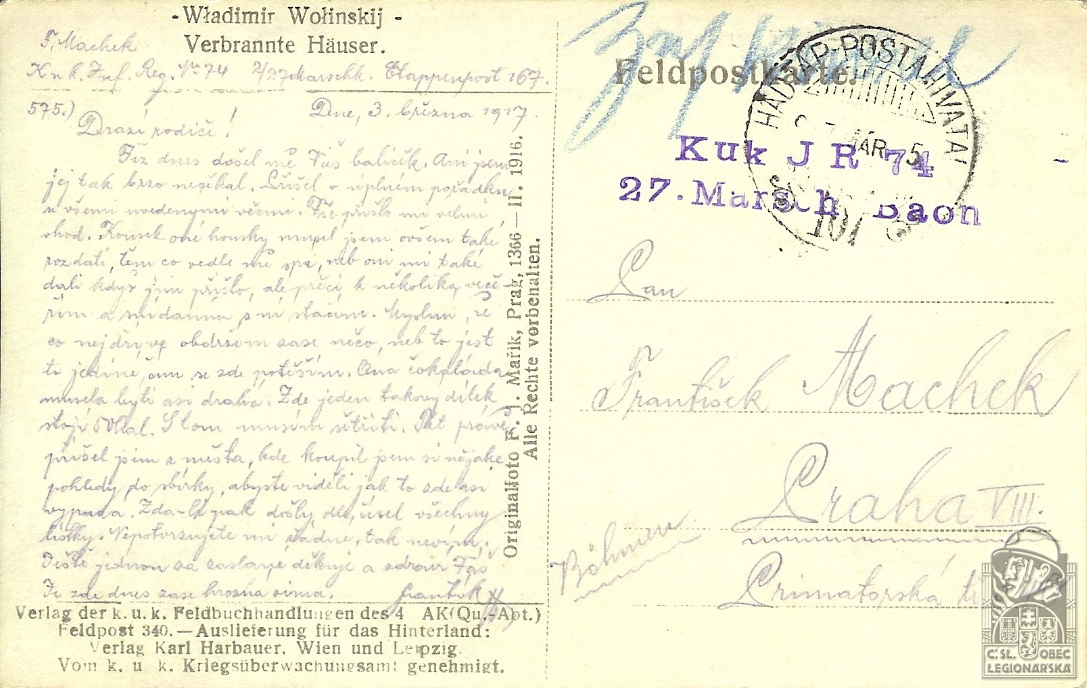 - Władimir Wołinskij -
Verbrannte Häuser.
F. Machek
K u k. Inf. Reg. No 74 2/27 Marschk. Etappenpost 167.
575.) Dne, 3. března 1917.
Drazí rodiče!
Již dnes došel mě Váš balíček. Ani jsem
jej tak brzo nečekal. Došel v úplném pořádku
s všemi uvedenými věcmi. Vše přišlo mi velmi
vhod. Kousek oné housky musel jsem ovšem také
rozdati, těm co vedle mě spí, neb oni mi také
dali když jim přišlo, ale přeci k několika veče
řím a snídaním s ní stačím. Myslím, že
co nejdříve obdržím zase něco, neb to jest
to jediné, čím se zde potěším. Ona čokoláda
musela býti asi drahá. Zde jeden takový dílek
stojí 50 hal. S tom musím šetřiti. Teď právě
přišel jsem z města, kde koupil jsem si nějaké
pohledy do sbírky, abyste viděli jak to zde asi
vypadá. Zda-li pak došly všechny
lístky. Nepotvrzujete mi žádné, tak nevím.
Ještě jednou za zaslané děkuje a zdraví Váš
Je zde dnes zase hrozná zima. František
Verlag der k. u. k. Feldbuchhandlungen des 4 AK (Qu.-Abt.)
Feldpost 340. — Auslieferung für das Hinterland:
Verlag Karl Harbauer, Wien und Leipzig.
Vom k. u. k. Kriegsüberwachungsamt genehmigt.
Originalfoto F. J. Mařik, Prag, 1366 — II. 1916.
Alle Rechte vorbehalten.
Feldpostkarte.
HADTÁP-POSTAHIVATAL
MÁR 5
167
Kuk J R 74
27. Marsch Baon
Pan
František Machek
Praha VIII.
Böhmen
Primátorská
ČSL. OBEC
LEGIONÁŘSKÁ